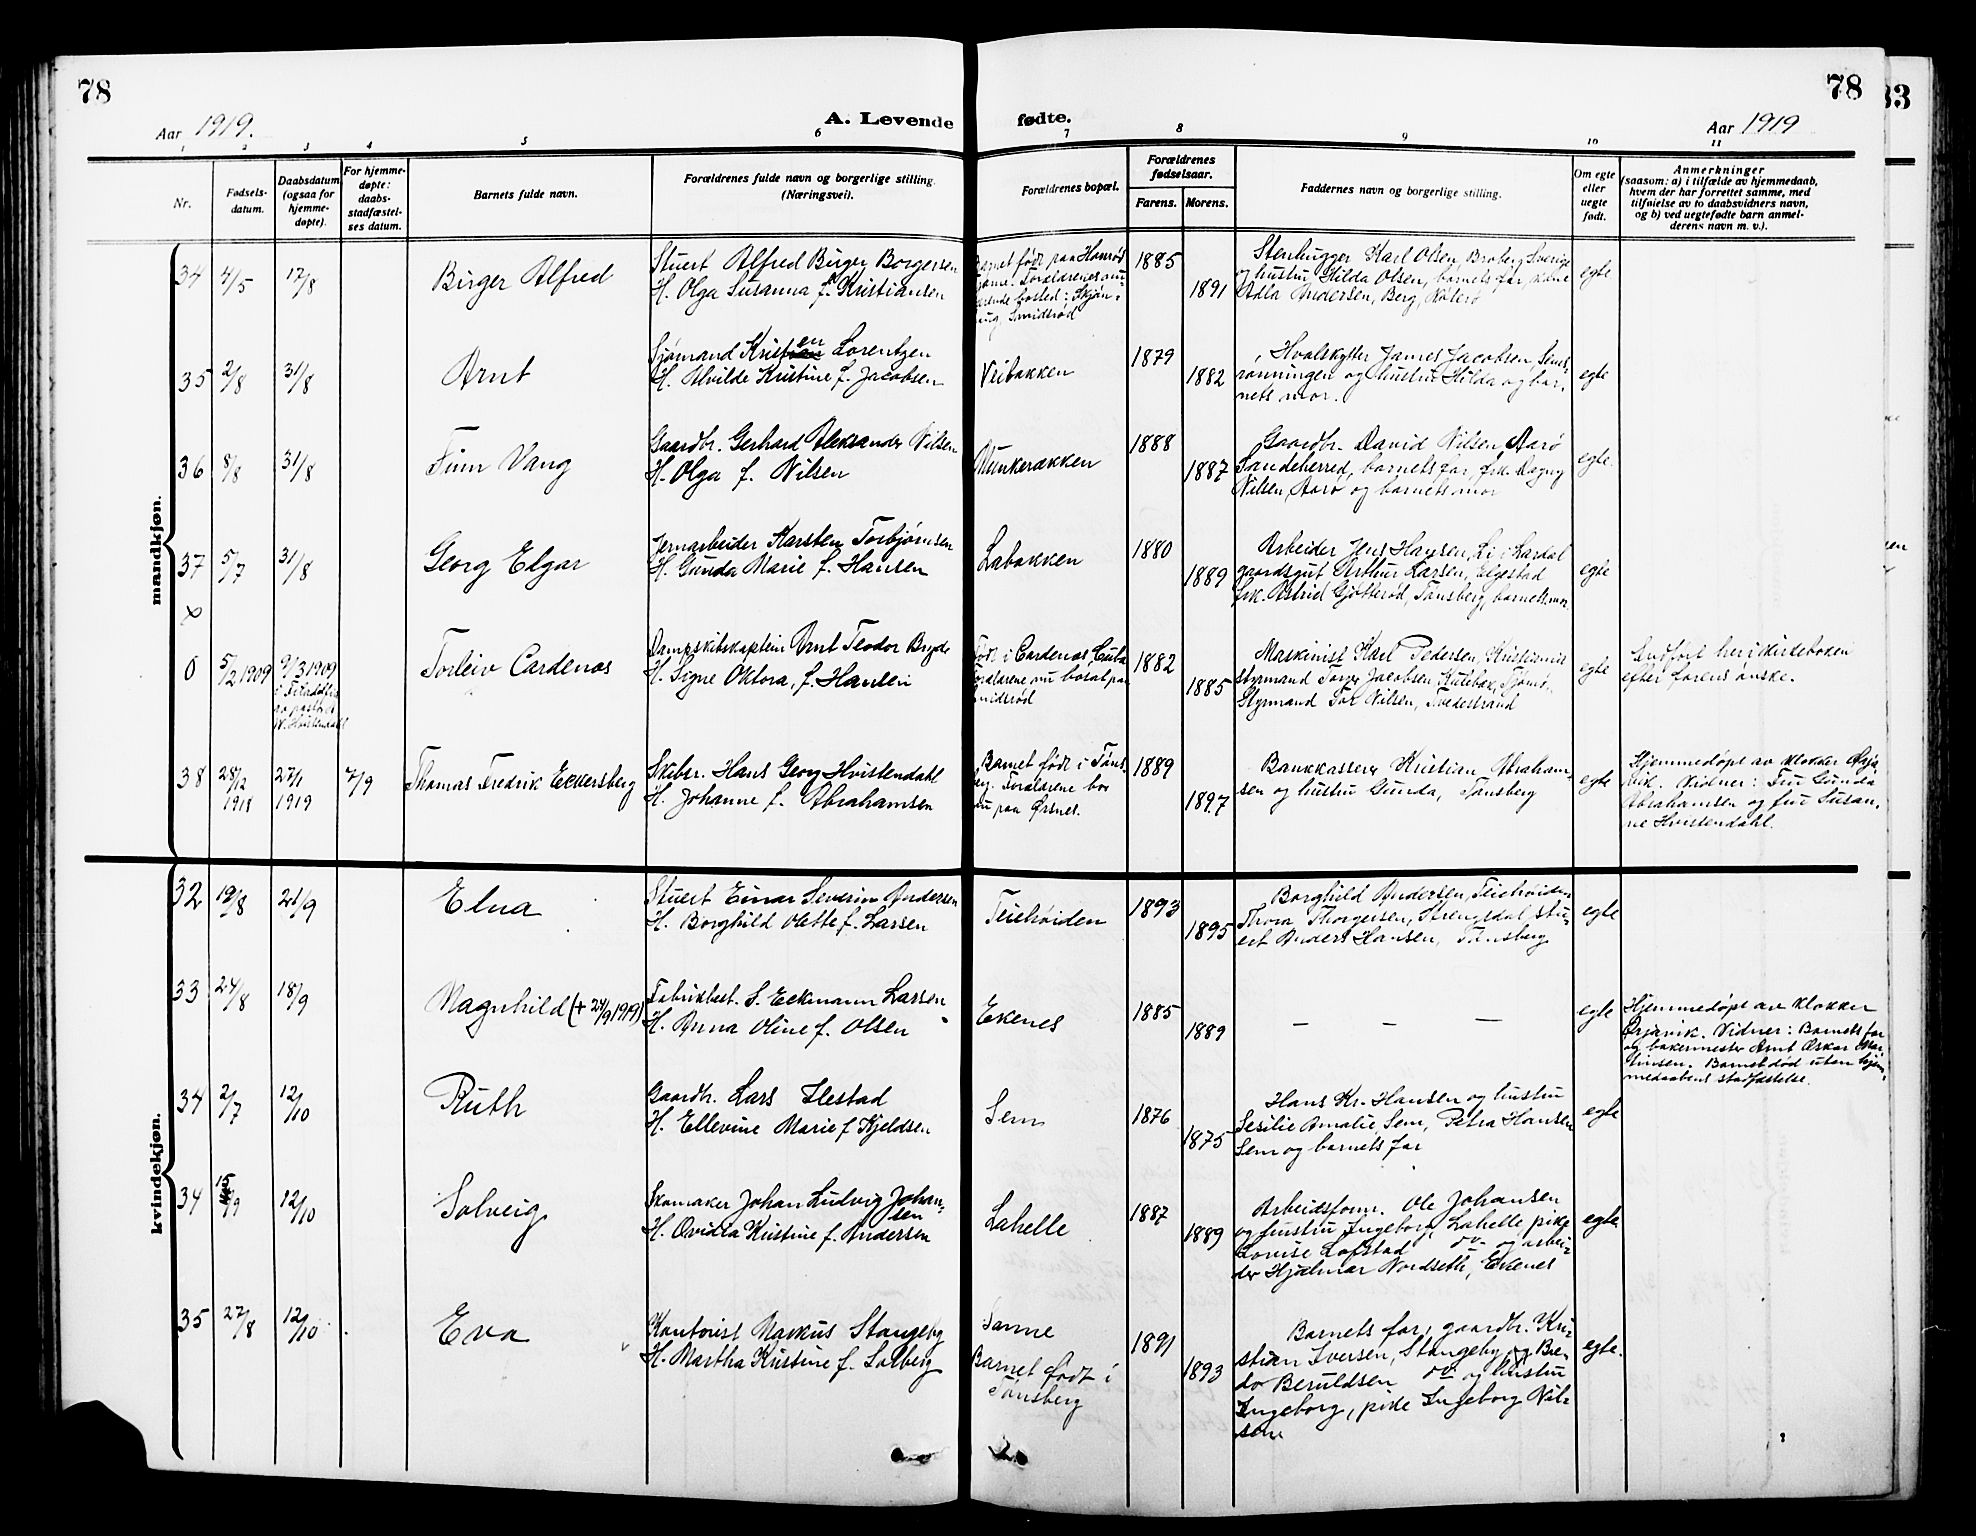 78
78
33
Aar 1919.
A. Levende fødte.
Aar 1919
1 2 3 4 5 6 7 8 9 10 11
Nr.
Fødsels-
datum.
Daabsdatum
(ogsaa for
hjemme-
døpte).
For hjemme-
døpte:
daabs-
stadfæstel-
ses datum.
Barnets fulde navn.
Forældrenes fulde navn og borgerlige stilling.
(Næringsvei).
Forældrenes bopæl.
Forældrenes
fødselsaar.
Farens. Morens.
Faddernes navn og borgerlige stilling.
Om egte
eller
uegte
født.
Anmerkninger
(saasom: a) i tilfælde av hjemmedaab,
hvem der har forrettet samme, med
tilføielse av to daabsvidners navn,
og b) ved uegtefødte barn anmel-
derens navn m. v.).
mandkjøn.
34 4/5 17/8 Birger Alfred
Stuert Alfred Birger Borgersen
H. Olga Susanna f. Kristiansen
Barnet født paa Hansrød
Tjøme. Forældrenes nu-
værende bosted: Skjøn-
Smidsrød
1885
1891
Stenhugger Karl Olsen, Broberg Sverige
og hustru Hilda Olsen, barnets far, kone
Adla Andersen, Berg,
egte
35 2/8 31/8 Arnt
Sjømand Kristen Lorentzen
H. Alvilde Kristine f. Jacobsen
Veibakken
1879
1882
Hvalskytter James Jacobsen, Sems-
rønningen og hustru Hilda og bar-
nets mor.
egte
36 8/8 31/8 Finn Vang
Gaardbr. Gerhard Aleksander Nilsen
H. Olga f. Nilsen
Munkerækken
1888
1887
Gaardbr. David Nilsen Aarø
Sandeherred, barnets far, frk. Dagny
Nilsen, Aarø og barnets mor
egte.
37 5/7 31/8 Georg Elgar
Jernarbeider Karsten Torbjørnsen
H. Gunda Marie f. Hansen
Labakken
1880
1889
Arbeider Jens Hansen, Li i Lardal
gaardsgut Arthur Larsen, Elgestad
frk. Astrid Gjøtterød, Tønsberg, barnets mor.
egte
x
0 5/2 1909 9/3 1909
av pastor
Hvistendahl
Torleiv Cardenas
Dampskibskaptein Arnt Teodor Bryde
H. Signe Oktora, f. Hansen
Født i Cardenas, Cuba
Forældrene nu bosat paa
Smidsrød
1882
1885
Maskinist Karl Pedersen, Kristiania
styrmand Torger Jacobsen, Tjømø,
Styrmand Tor Nilsen, Tvedestrand
egte
Indført her i kirkeboken
efter farens ønske.
38 28/12 1918 27/1 1919 7/9 Thomas Fredrik Eckersberg
Skibsr. Hans Georg Hvistendahl
H. Johanne f. Abrahamsen
Barnet født i Tøns-
berg. Forældrene bor
nu paa Ørsnes.
1889
1897
Bankkasserer Kristian Abraham-
sen og hustru Gunda, Tønsberg
egte
Hjemmedøpt av klokker Ørja
vik. Vidner: Fru Gunda
Abrahamsen og fru Susan-
ne Hvistendahl.
kvindekjøn.
32 19/8 21/9 Elna
Stuert Einar Severin Andersen
H. Borghild Olette f. Larsen
Teiehøiden
1893
1895
Borghild Andersen, Teiehøiden
Thora Thorgersen, Strengsdal stu-
ert Anders Hansen, Tønsberg
egte
33 24/8 18/9 Magnhild (+ 27/9 1919)
Fabrikbest. S. Eckmann Larsen
H. Anna Oline f. Olsen
Ekenes
1885
1889
— — —
egte
Hjemmedøpt av klokker
Ørjavik. Vidner: Barnets far
og bakermester Arnt Oskar Mar-
tinsen. Barnet død uten hjem-
medaabens stadfæstelse.
34 2/7 12/10 Ruth
Gaardbr. Lars Ilestad
H. Ellevine Marie f. Kjeldsen
Sem
1876
1875
Hans Kr. Hansen og hustru
Sesilie Amalie, Sem, Petra Hansen
Sem og barnets far
egte
34 15/9 12/10 Solveig
Skomaker Johan Ludvig Johan-
sen
H. Ovidia Kristine f. Andersen
Lahelle
1887
1889
Arbeidsform. Ole Johansen
og hustru Ingeborg, Lahelle pike
Lovise Lofstad do og arbei-
der Hjalmar Nordseth, Ekenes
egte.
35 27/8 12/10 Eva
Kontorist Markus Stangeby
H. Martha Kristine f. Solberg
Sanne
Barnet født i
Tønsberg
1891
1893
Barnets far, gaardbr. Kri-
stian Iversen, Stangeby og Bre-
do Beruldsen do og hustru
Ingeborg, pike Ingeborg Nil-
sen
egte.